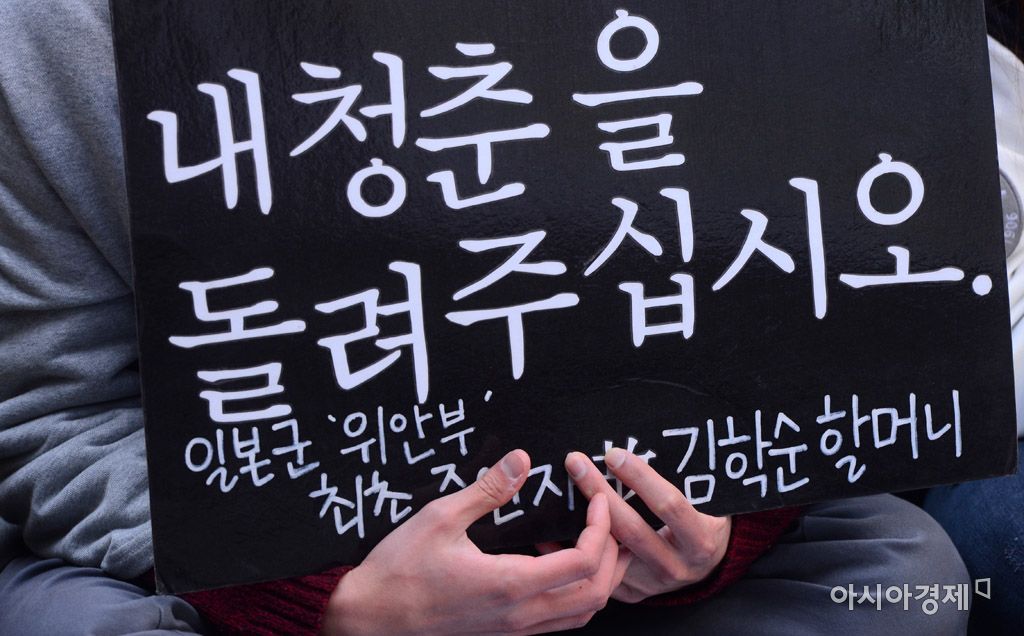 내 청춘을
돌려주십시오.
일본군 '위안부'
최초 증언자 故 김학순 할머니
아시아경제
906